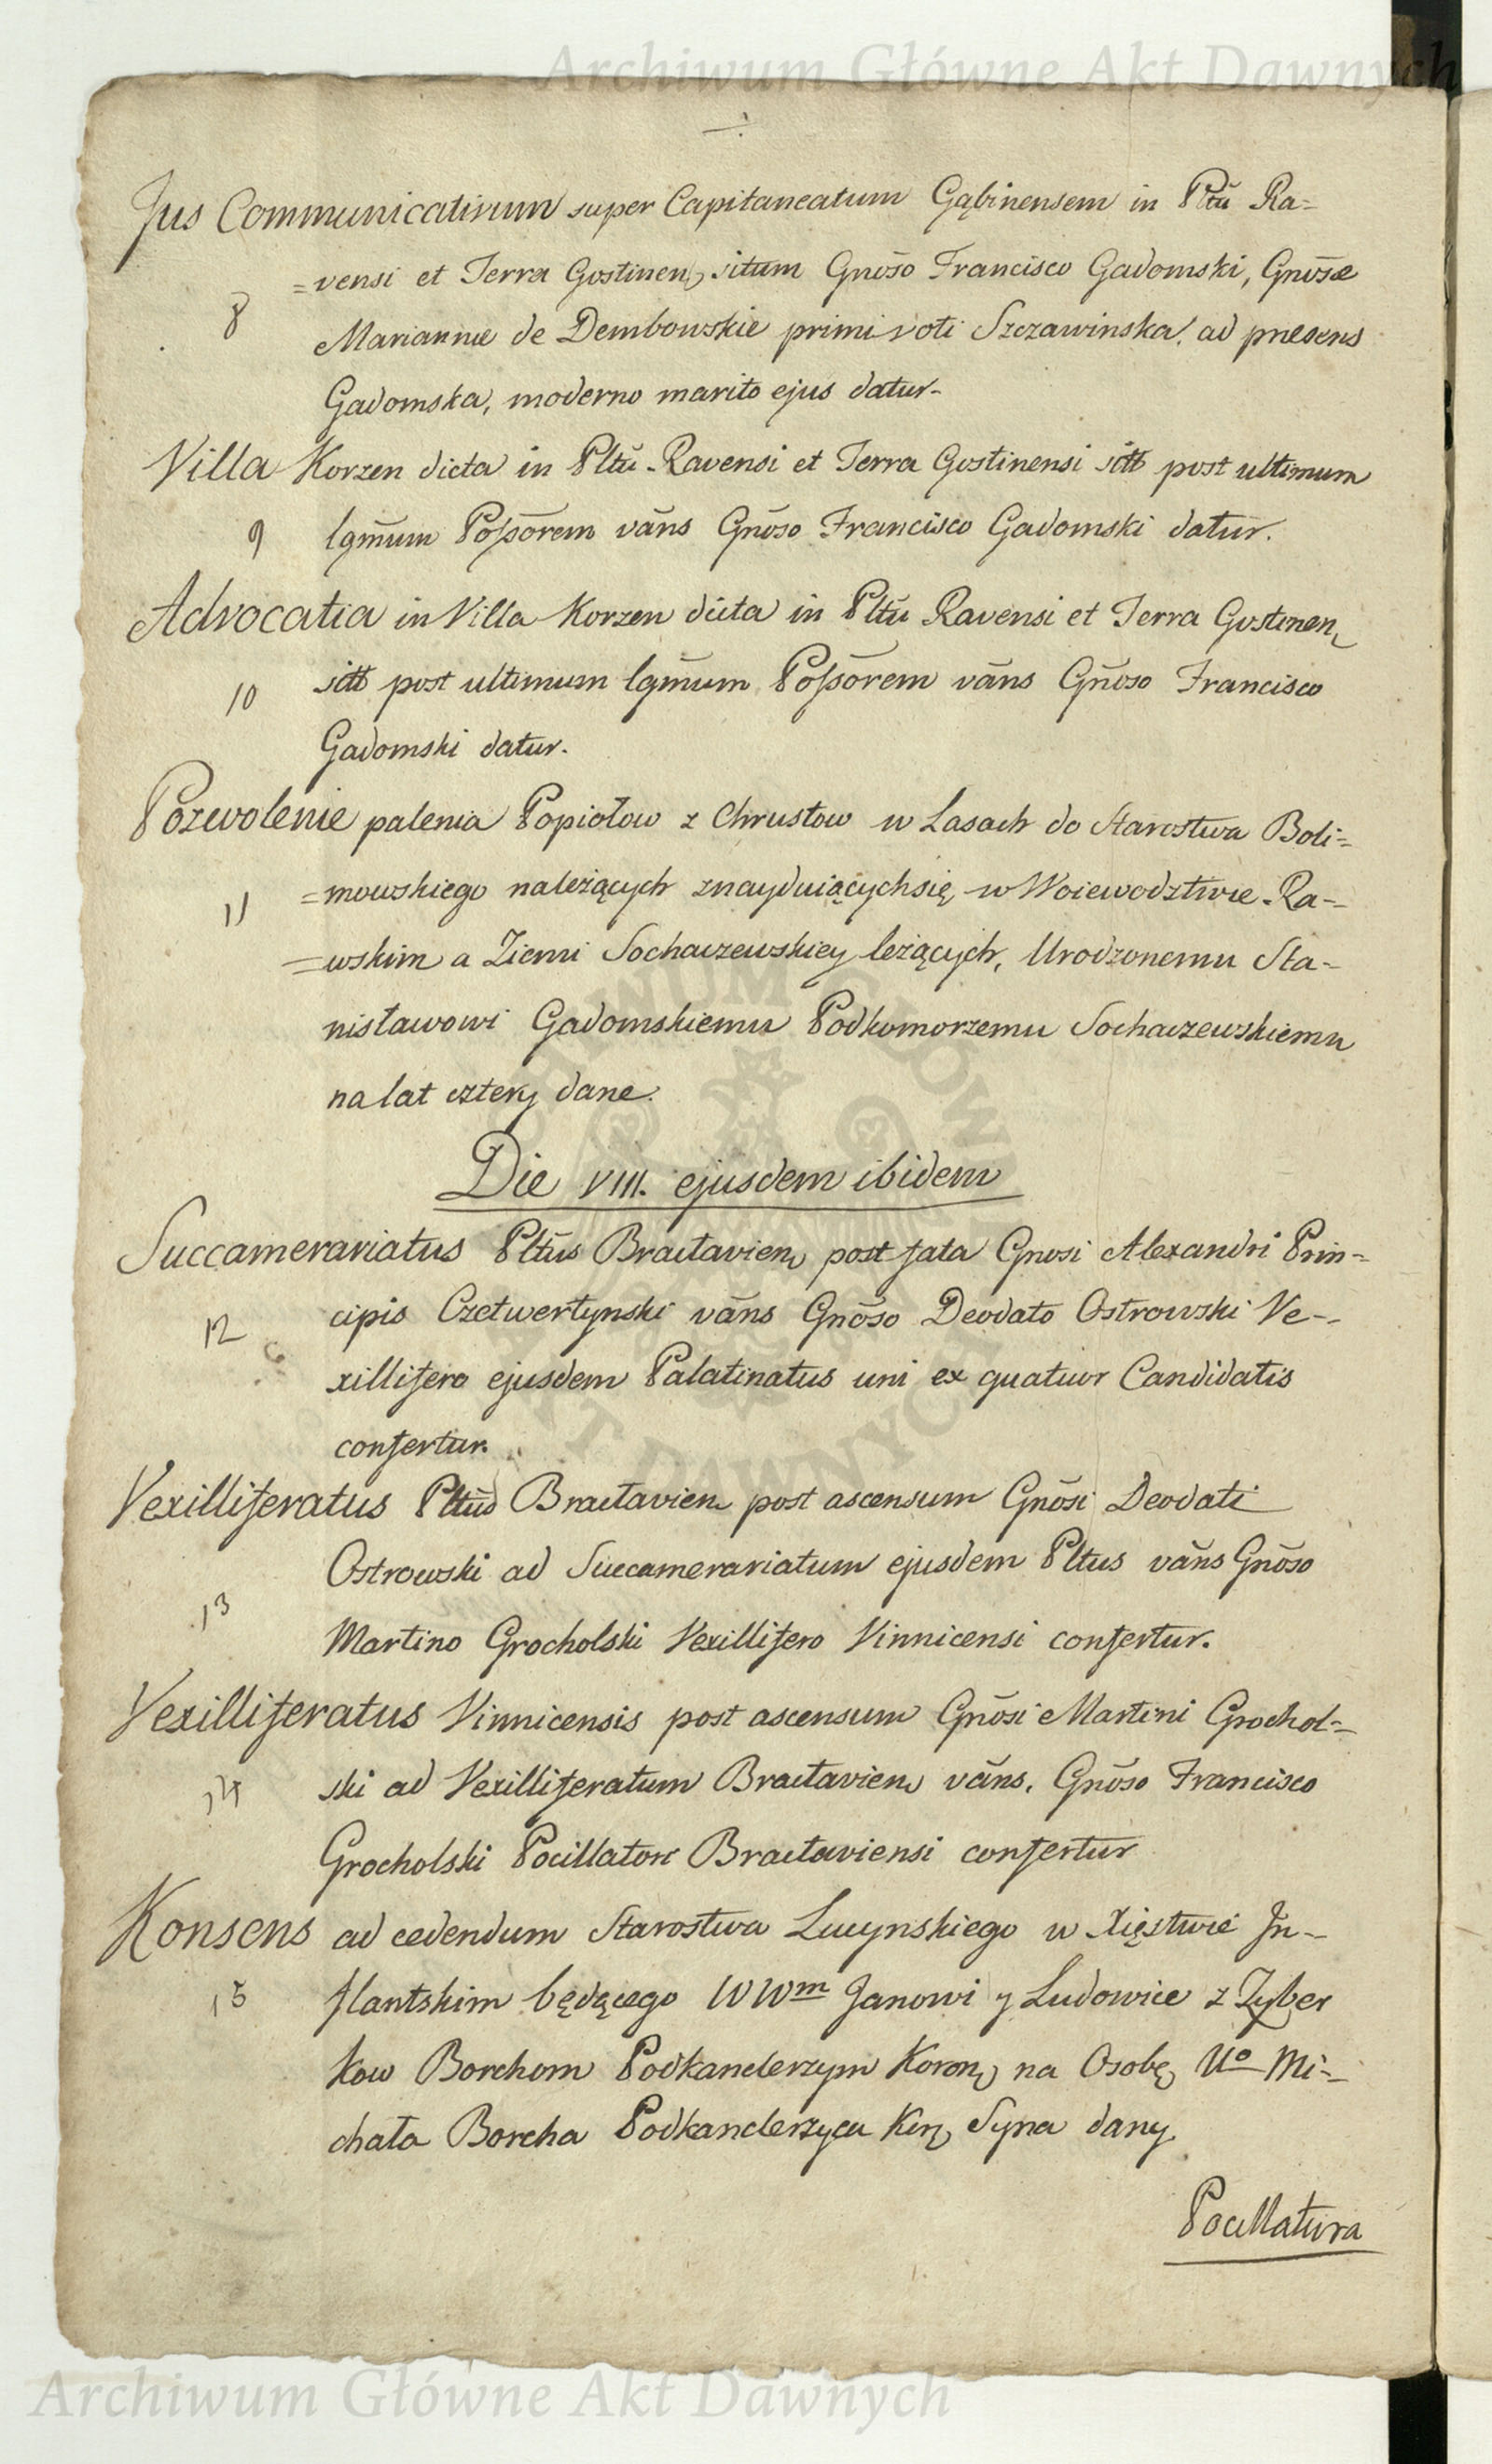 Archiwum Główne Akt Dawnych
Jus Communicativum super Capitaneatum Gąbinensem in Pltū Ra=
=vensi et Terra Gostinen, situm Gnōso Francisco Gadomski, Gnōsæ
8
Mariannæ de Dembowskie primi voti Szczawinska, ad præsens
Gadomska, moderno marito ejus datur.
Villa Korzen dicta in Pltū Ravensi et Terra Gostinensi sitt post ultimum
9 lgm̄um Possōrem vāns Gnōso Francisco Gadomski datur.
Advocatia in Villa Korzen dicta in Pltū Ravensi et Terra Gostinen,
10 sitt post ultimum lgm̄um Possōrem vāns Gnōso Francisco
Gadomski datur.
Pozwolenie palenia Popiołow z Chrustow w Lasach do Starostwa Boli=
11 =mowskiego należących znayduiącychsię w Woiewodztwie Ra=
=wskim a Ziemi Sochaczewskiey leżących, Urodzonemu Sta=
nisławowi Gadomskiemu Podkomorzemu Sochaczewskiemu
na lat cztery dane.
Die VIII. ejusdem ibidem
Succamerariatus Pltūs Bracłavien, post fata Gnosi Alexandri Prin=
12 cipis Czetwertynski vāns Gnōso Deodato Ostrowski Ve=
xillifero ejusdem Palatinatus uni ex quatuor Candidatis
confertur.
Vexilliferatus Pltūs Bracłavien, post ascensum Gnōsi Deodati
Ostrowski ad Succamerariatum ejusdem Pltus vāns Gnōso
13
Martino Grocholski Vexillifero Vinnicensi confertur.
Vexilliferatus Vinnicensis post ascensum Gnōsi Martini Grochol=
14 ski ad Vexilliferatum Bracłavien, vāns. Gnōso Francisco
Grocholski Pocillatori Bracłaviensi confertur
Konsens ad cedendum Starostwa Lucynskiego w Xięstwie In=
15 flantskim będącego WWm Janowi y Ludowice z Zyber
kow Borchom Podkanclerzym Koron, na Osobę Uo Mi=
chała Borcha Podkanclerzyca Kor, Syna dany.
Pocillatura
Archiwum Główne Akt Dawnych